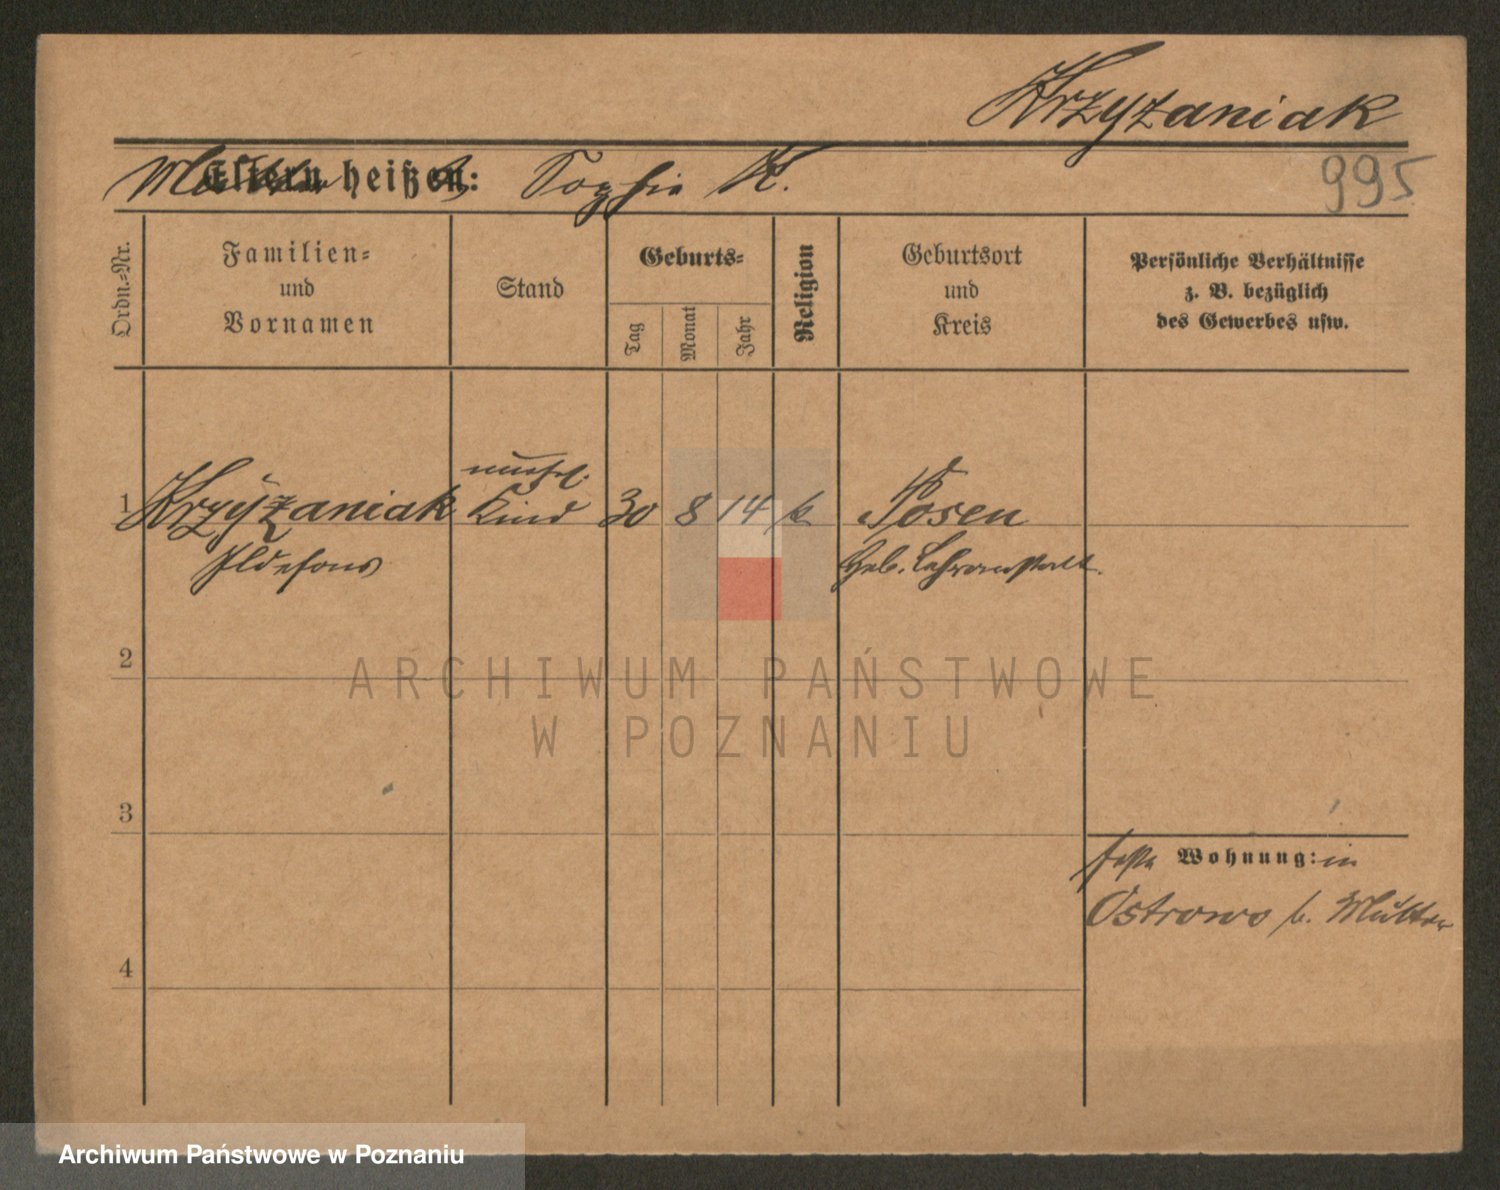 Krzyzaniak
995
Mutter
Eltern heißen: Sophie K.
Ordn.-Nr.
Familien-
und
Vornamen
Stand
Geburts-
Tag
Monat
Jahr
Religion
Geburtsort
und
Kreis
Persönliche Verhältnisse
z. B. bezüglich
des Gewerbes usw.
1 Krzyżaniak unehel. Kind 30 8 14 k Posen
Ildefons Geb. Lehranstalt.
2
3
4
feste Wohnung: in
Ostrowo b. Mutter
ARCHIWUM PAŃSTWOWE
W POZNANIU
Archiwum Państwowe w Poznaniu